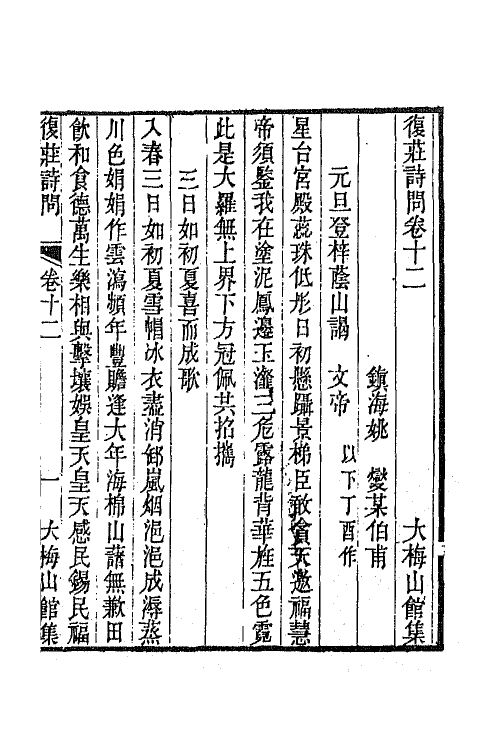 復莊詩問卷十二　大梅山館集
鎮海姚　燮某伯甫
元旦登梓蔭山謁　文帝　以下丁酉作
星台宮殿蕊珠低彤日初懸躡景梯臣敢貪天邀福慧
帝須鑒我在塗泥鳳邊玉瀣三危露龍背華旌五色霓
此是大羅無上界下方冠佩共招攜
三日如初夏喜而成歌
入春三日如初夏雪帽冰衣盡消卸嵐烟浥浥成溽蒸
川色娟娟作雲瀉頻年豐贍逢大年海棉山藷無歉田
飲和食德萬生樂相與擊壤娛皇天皇天感民錫民福
復莊詩問　卷十二　一　大梅山館集